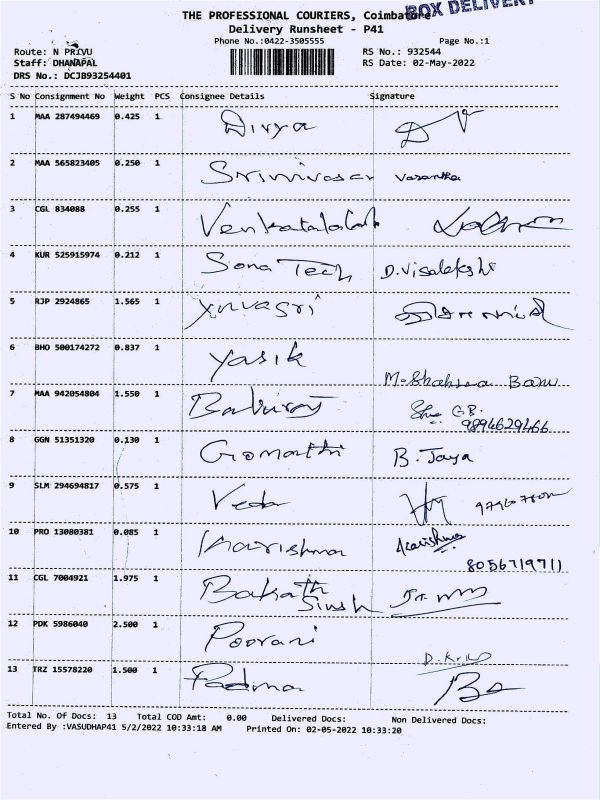 BOX DELIVERY
THE PROFESSIONAL COURIERS, Coimbatore
Delivery Runsheet - P41
Phone No.:0422-3505555 Page No.:1
Route: N PRIVU RS No.: 932544
Staff: DHANAPAL RS Date: 02-May-2022
DRS No.: DCJB93254401
S No Consignment No Weight PCS Consignee Details Signature
1 MAA 287494469 0.425 1 Divya
2 MAA 565823405 0.250 1 Srinivasan Vasantha
3 CGL 834088 0.255 1
4 KUR 525915974 0.212 1 Sona Tech D.Visalekshi
5 RJP 2924865 1.565 1
6 BHO 500174272 0.837 1 Yasik
M. Banu
7 MAA 942054804 1.550 1 Baburaj G.B.
9894629466
8 GGN 51351320 0.130 1 Gomathi B. Jaya
9 SLM 294694817 0.575 1 Veda
10 PRO 13080381 0.085 1 Karishma Karishma
8056719711
11 CGL 7004921 1.975 1
Singh
12 PDK 5986040 2.500 1 Poorani
13 TRZ 15578220 1.500 1 Padma
Total No. Of Docs: 13 Total COD Amt: 0.00 Delivered Docs: Non Delivered Docs:
Entered By :VASUDHAP41 5/2/2022 10:33:18 AM Printed On: 02-05-2022 10:33:20